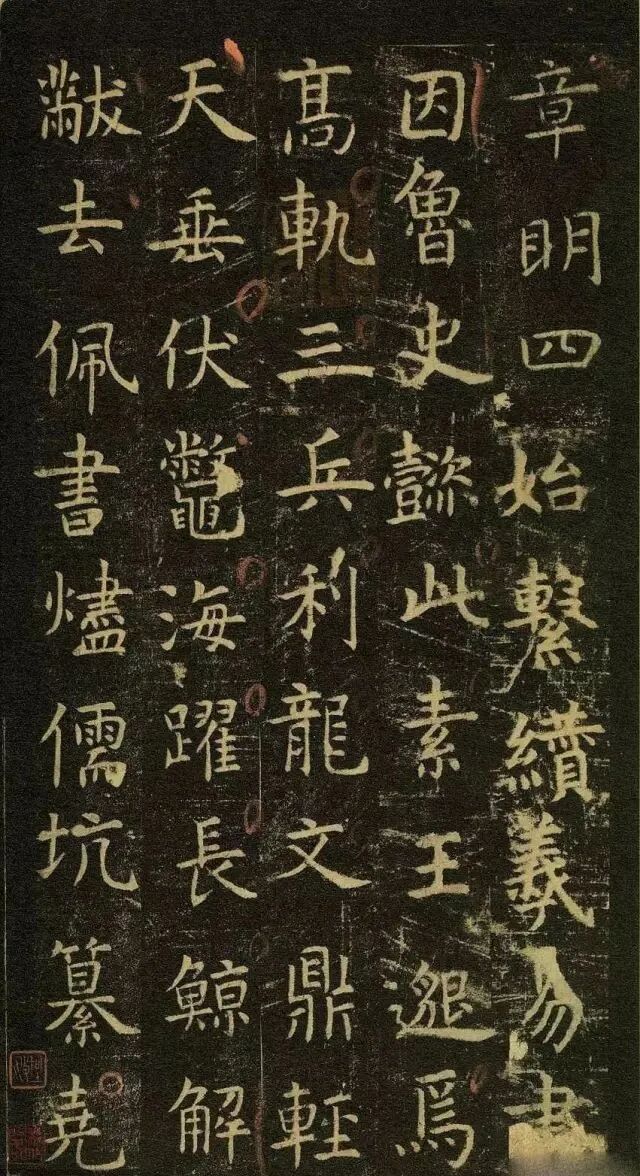 章明四始繫纘羲易書
因魯史懿此素王邈焉
髙軌三兵利龍文鼎輕
天垂伏鼈海躍長鯨解
黻去佩書燼儒坑纂堯